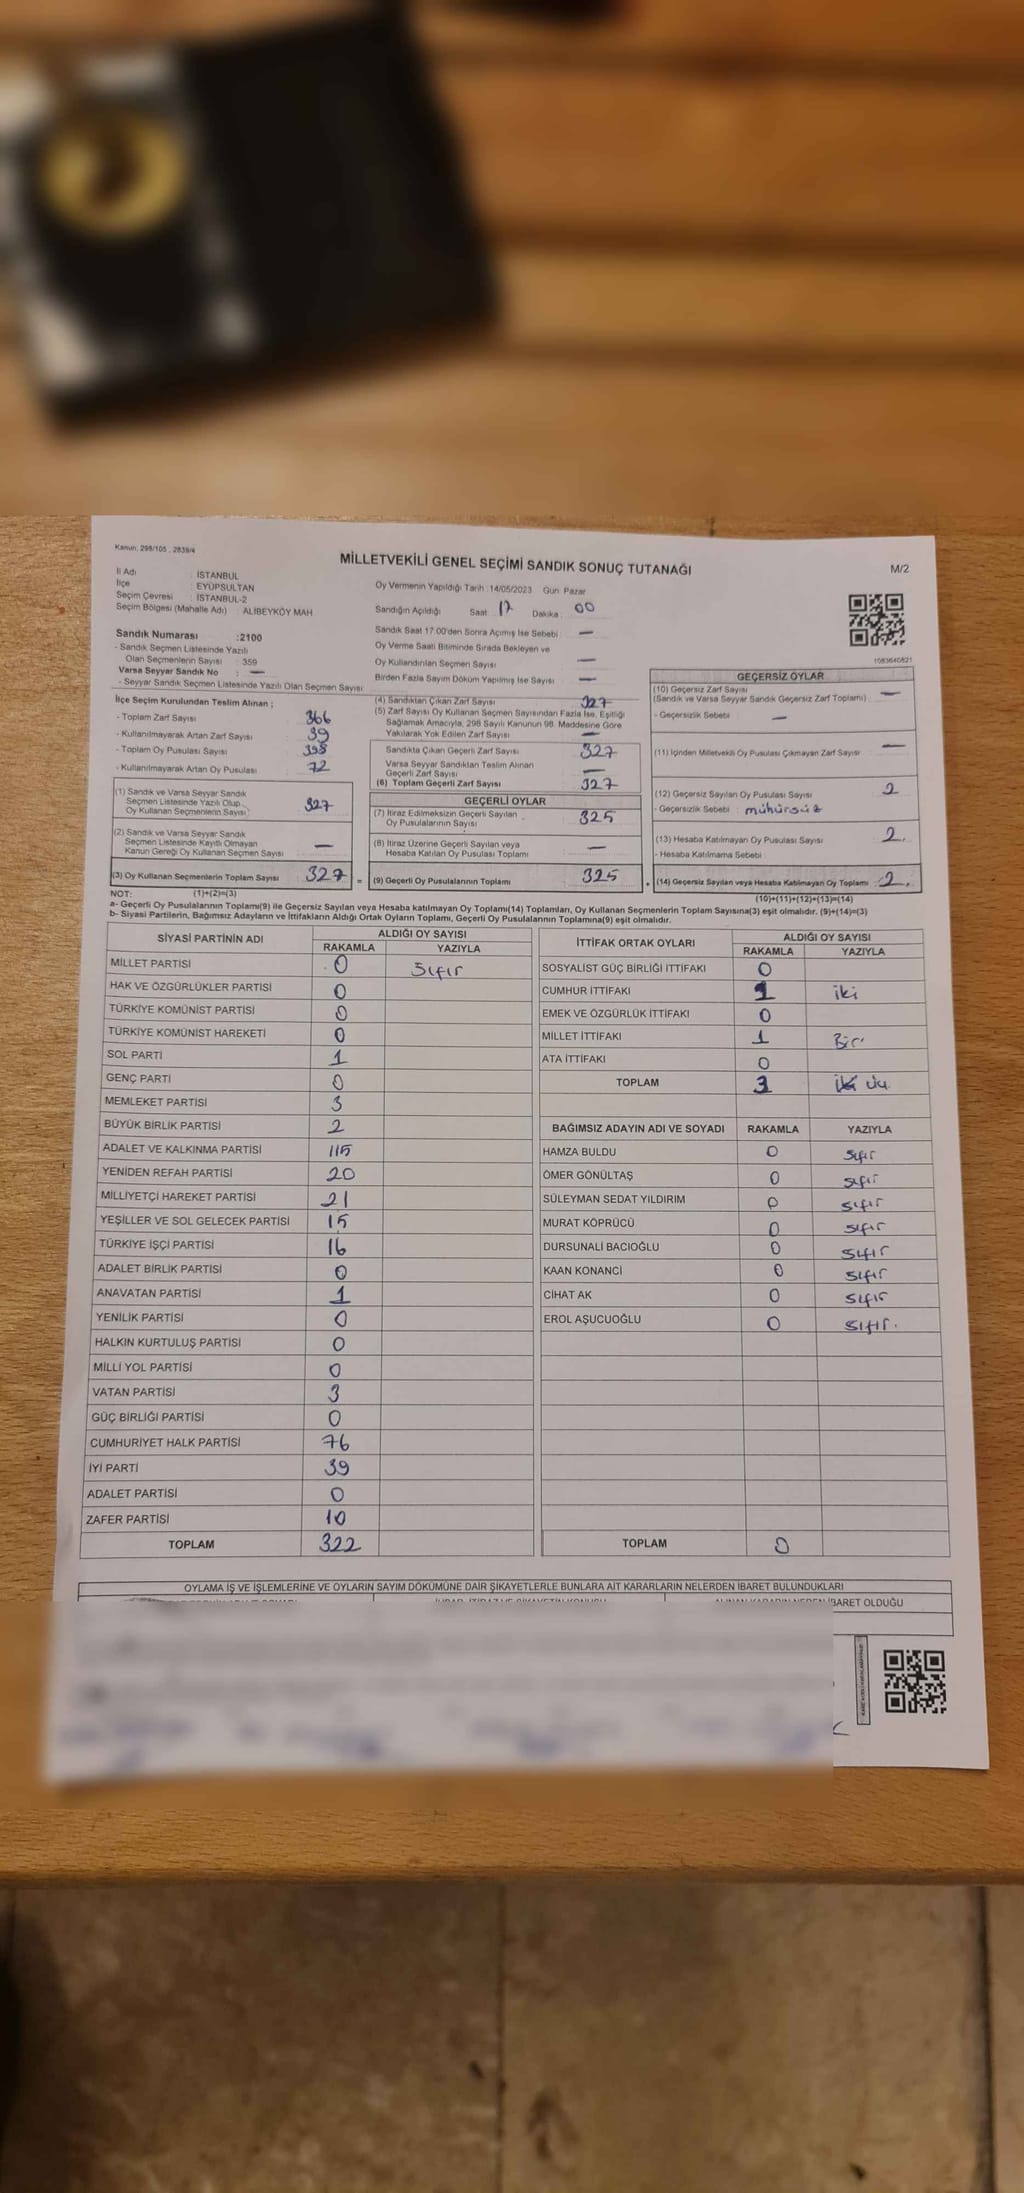 Kanun: 298/105 , 2839/4
MİLLETVEKİLİ GENEL SEÇİMİ SANDIK SONUÇ TUTANAĞI
M/2
İl Adı : İSTANBUL
İlçe : EYÜPSULTAN
Seçim Çevresi : İSTANBUL-2
Seçim Bölgesi (Mahalle Adı) : ALİBEYKÖY MAH
Oy Vermenin Yapıldığı Tarih :14/05/2023 Gün: Pazar
Sandığın Açıldığı Saat : 17 Dakika : 00
Sandık Numarası :2100
- Sandık Seçmen Listesinde Yazılı
Olan Seçmenlerin Sayısı : 359
Varsa Seyyar Sandık No : —
- Seyyar Sandık Seçmen Listesinde Yazılı Olan Seçmen Sayısı
Sandık Saat 17:00'den Sonra Açılmış İse Sebebi : —
Oy Verme Saati Bitiminde Sırada Bekleyen ve
Oy Kullandırılan Seçmen Sayısı : —
Birden Fazla Sayım Döküm Yapılmış İse Sayısı : —
1083640821
İlçe Seçim Kurulundan Teslim Alınan ;
- Toplam Zarf Sayısı : 366
- Kullanılmayarak Artan Zarf Sayısı : 39
- Toplam Oy Pusulası Sayısı : 398
- Kullanılmayarak Artan Oy Pusulası : 72
(1) Sandık ve Varsa Seyyar Sandık
Seçmen Listesinde Yazılı Olup
Oy Kullanan Seçmenlerin Sayısı : 327
(2) Sandık ve Varsa Seyyar Sandık
Seçmen Listesinde Kayıtlı Olmayan
Kanun Gereği Oy Kullanan Seçmen Sayısı —
(3) Oy Kullanan Seçmenlerin Toplam Sayısı 327
(4) Sandıktan Çıkan Zarf Sayısı 327
(5) Zarf Sayısı Oy Kullanan Seçmen Sayısından Fazla İse, Eşitliği
Sağlamak Amacıyla, 298 Sayılı Kanunun 98. Maddesine Göre
Yakılarak Yok Edilen Zarf Sayısı —
Sandıkta Çıkan Geçerli Zarf Sayısı 327
Varsa Seyyar Sandıktan Teslim Alınan
Geçerli Zarf Sayısı —
(6) Toplam Geçerli Zarf Sayısı 327
GEÇERLİ OYLAR
(7) İtiraz Edilmeksizin Geçerli Sayılan
Oy Pusulalarının Sayısı 325
(8) İtiraz Üzerine Geçerli Sayılan veya
Hesaba Katılan Oy Pusulası Toplamı —
(9) Geçerli Oy Pusulalarının Toplamı 325
GEÇERSİZ OYLAR
(10) Geçersiz Zarf Sayısı —
(Sandık ve Varsa Seyyar Sandık Geçersiz Zarf Toplamı)
- Geçersizlik Sebebi : —
(11) İçinden Milletvekili Oy Pusulası Çıkmayan Zarf Sayısı —
(12) Geçersiz Sayılan Oy Pusulası Sayısı 2
- Geçersizlik Sebebi : mühürsüz
(13) Hesaba Katılmayan Oy Pusulası Sayısı 2.
- Hesaba Katılmama Sebebi
(14) Geçersiz Sayılan veya Hesaba Katılmayan Oy Toplamı 2.
NOT: (1)+(2)=(3)
(10)+(11)+(12)+(13)=(14)
a- Geçerli Oy Pusulalarının Toplamı(9) ile Geçersiz Sayılan veya Hesaba katılmayan Oy Toplamı(14) Toplamları, Oy Kullanan Seçmenlerin Toplam Sayısına(3) eşit olmalıdır. (9)+(14)=(3)
b- Siyasi Partilerin, Bağımsız Adayların ve İttifakların Aldığı Ortak Oyların Toplamı, Geçerli Oy Pusulalarının Toplamına(9) eşit olmalıdır.
SİYASİ PARTİNİN ADI ALDIĞI OY SAYISI
RAKAMLA YAZIYLA
MİLLET PARTİSİ 0 Sıfır
HAK VE ÖZGÜRLÜKLER PARTİSİ 0
TÜRKİYE KOMÜNİST PARTİSİ 0
TÜRKİYE KOMÜNİST HAREKETİ 0
SOL PARTİ 1
GENÇ PARTİ 0
MEMLEKET PARTİSİ 3
BÜYÜK BİRLİK PARTİSİ 2
ADALET VE KALKINMA PARTİSİ 115
YENİDEN REFAH PARTİSİ 20
MİLLİYETÇİ HAREKET PARTİSİ 21
YEŞİLLER VE SOL GELECEK PARTİSİ 15
TÜRKİYE İŞÇİ PARTİSİ 16
ADALET BİRLİK PARTİSİ 0
ANAVATAN PARTİSİ 1
YENİLİK PARTİSİ 0
HALKIN KURTULUŞ PARTİSİ 0
MİLLİ YOL PARTİSİ 0
VATAN PARTİSİ 3
GÜÇ BİRLİĞİ PARTİSİ 0
CUMHURİYET HALK PARTİSİ 76
İYİ PARTİ 39
ADALET PARTİSİ 0
ZAFER PARTİSİ 10
TOPLAM 322
İTTİFAK ORTAK OYLARI ALDIĞI OY SAYISI
RAKAMLA YAZIYLA
SOSYALİST GÜÇ BİRLİĞİ İTTİFAKI 0
CUMHUR İTTİFAKI iki
EMEK VE ÖZGÜRLÜK İTTİFAKI 0
MİLLET İTTİFAKI 1 Bir
ATA İTTİFAKI 0
TOPLAM 3 üç
BAĞIMSIZ ADAYIN ADI VE SOYADI RAKAMLA YAZIYLA
HAMZA BULDU 0 sıfır
ÖMER GÖNÜLTAŞ 0 sıfır
SÜLEYMAN SEDAT YILDIRIM 0 sıfır
MURAT KÖPRÜCÜ 0 sıfır
DURSUNALİ BACIOĞLU 0 sıfır
KAAN KONANCİ 0 sıfır
CİHAT AK 0 sıfır
EROL AŞUCUOĞLU 0 sıfır.
TOPLAM 0
OYLAMA İŞ VE İŞLEMLERİNE VE OYLARIN SAYIM DÖKÜMÜNE DAİR ŞİKAYETLERLE BUNLARA AİT KARARLARIN NELERDEN İBARET BULUNDUKLARI
İBARET OLDUĞU